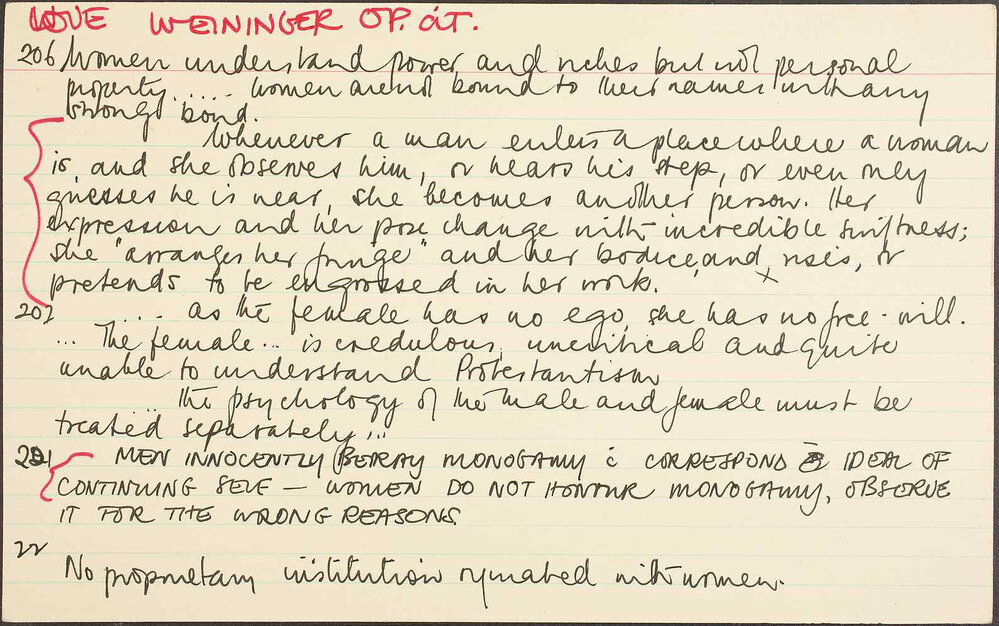 LOVE WEININGER OP. CIT.
206 Women understand power and riches but not personal
property ..... women are not bound to their names with any
strong bond.
Whenever a man enters a place where a woman
is, and she observes him, or hears his step, or even only
guesses he is near, she becomes another person. Her
expression and her pose change with incredible swiftness;
she "arranges her fringe" and her bodice, and rises, or
pretends to be engrossed in her work.
207 .... as the female has no ego she has no free-will.
... The female .. is credulous, uncritical and quite
unable to understand Protestantism
The psychology of the male and female must be
treated separately ...
221 MEN INNOCENTLY BETRAY MONOGAMY c̄ CORRESPOND IDEAL OF
CONTINUING SELF — WOMEN DO NOT HONOUR MONOGAMY, OBSERVE
IT FOR THE WRONG REASONS.
22
No proprietary institution originated with women.